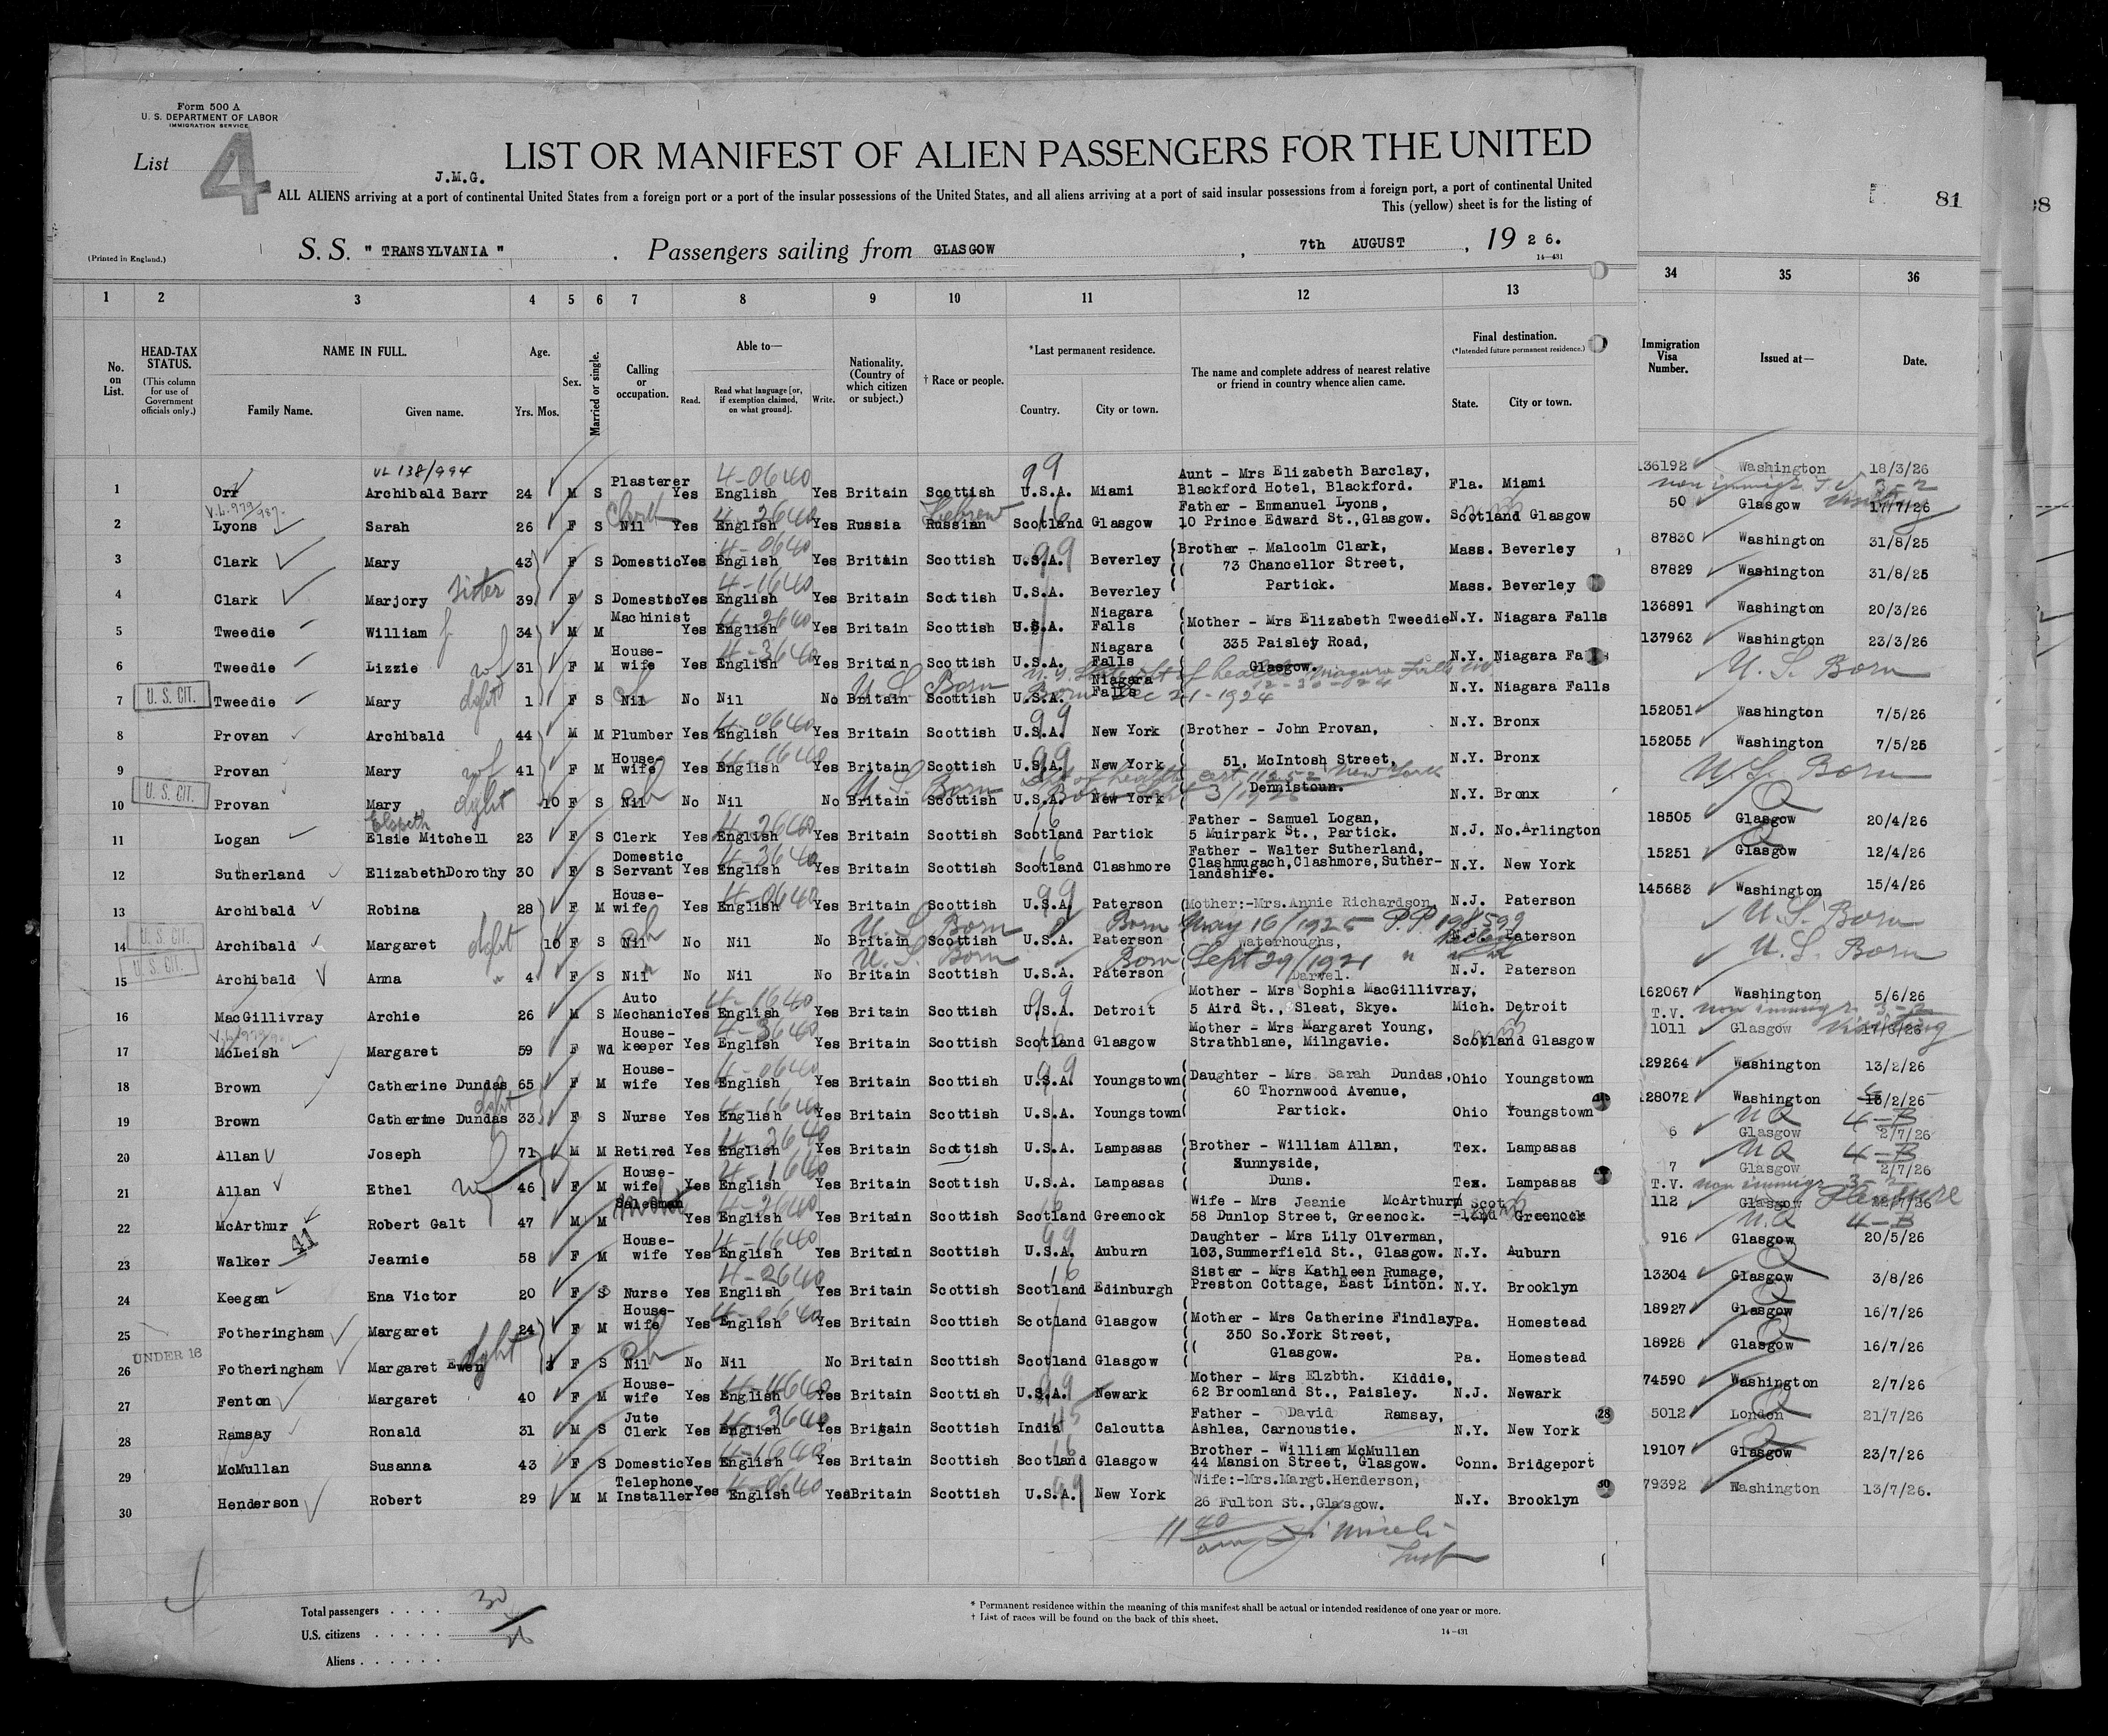 Form 500 A
U. S. DEPARTMENT OF LABOR
IMMIGRATION SERVICE
List 4
J.M.G.
LIST OR MANIFEST OF ALIEN PASSENGERS FOR THE UNITED
ALL ALIENS arriving at a port of continental United States from a foreign port or a port of the insular possessions of the United States, and all aliens arriving at a port of said insular possessions from a foreign port, a port of continental United
This (yellow) sheet is for the listing of
81
(Printed in England.)
S.S. " TRANSYLVANIA " . Passengers sailing from GLASGOW , 7th AUGUST , 19 2 6.
14—431
1 2 3 4 5 6 7 8 9 10 11 12 13 34 35 36
No. on List. HEAD-TAX STATUS. (This column for use of Government officials only.) NAME IN FULL. Family Name. Given name. Age. Yrs. Mos. Sex. Married or single. Calling or occupation. Able to— Read. Read what language [or, if exemption claimed, on what ground]. Write. Nationality. (Country of which citizen or subject.) † Race or people. *Last permanent residence. Country. City or town. The name and complete address of nearest relative or friend in country whence alien came. Final destination. (*Intended future permanent residence.) State. City or town. Immigration Visa Number. Issued at— Date.
VL 138/994
1 Orr Archibald Barr 24 M S Plasterer Yes English Yes Britain Scottish U.S.A. Miami Aunt - Mrs Elizabeth Barclay, Blackford Hotel, Blackford. Fla. Miami 136192 Washington 18/3/26
2 Lyons Sarah 26 F S Nil Yes English Yes Russia Russian Hebrew Scotland Glasgow Father - Emmanuel Lyons, 10 Prince Edward St.,Glasgow. Scotland Glasgow 50 Glasgow 17/7/26
3 Clark Mary 43 F S Domestic Yes English Yes Britain Scottish U.S.A. Beverley Brother - Malcolm Clark, 73 Chancellor Street, Mass. Beverley 87830 Washington 31/8/25
4 Clark Marjory sister 39 F S Domestic Yes English Yes Britain Scottish U.S.A. Beverley Partick. Mass. Beverley 87829 Washington 31/8/25
5 Tweedie William 34 M M Machinist Yes English Yes Britain Scottish U.S.A. Niagara Falls Mother - Mrs Elizabeth Tweedie N.Y. Niagara Falls 136891 Washington 20/3/26
6 Tweedie Lizzie wf 31 F M House-wife Yes English Yes Britain Scottish U.S.A. Niagara Falls 335 Paisley Road, Glasgow. N.Y. Niagara Falls 137963 Washington 23/3/26
U. S. Born
7 U. S. CIT. Tweedie Mary dght 1 F S Nil No Nil No Britain Scottish U.S.A. Niagara Falls Born Dec 21-1924 N.Y. Niagara Falls U. S. Born
8 Provan Archibald 44 M M Plumber Yes English Yes Britain Scottish U.S.A. New York Brother - John Provan, N.Y. Bronx 152051 Washington 7/5/26
9 Provan Mary wf 41 F M House-wife Yes English Yes Britain Scottish U.S.A. New York 51, McIntosh Street, N.Y. Bronx 152055 Washington 7/5/26
U. S. Born
10 U. S. CIT. Provan Mary dght 10 F S Nil No Nil No Britain Scottish U.S.A. New York Dennistoun. N.Y. Bronx U. S. Born
11 Logan Elsie Mitchell Elspeth 23 F S Clerk Yes English Yes Britain Scottish Scotland Partick Father - Samuel Logan, 5 Muirpark St., Partick. N.J. No.Arlington 18505 Glasgow 20/4/26
12 Sutherland ElizabethDorothy 30 F S Domestic Servant Yes English Yes Britain Scottish Scotland Clashmore Father - Walter Sutherland, Clashmugach,Clashmore, Suther-landshire. N.Y. New York 15251 Glasgow 12/4/26
13 Archibald Robina 28 F M House-wife Yes English Yes Britain Scottish U.S.A. Paterson Mother:-Mrs.Annie Richardson, N.J. Paterson 145683 Washington 15/4/26
U. S. Born Born May 16/1925 P.P. 198599
14 U. S. CIT. Archibald Margaret dght 10 F S Nil No Nil No Britain Scottish U.S.A. Paterson Waterhoughs, Paterson U. S. Born
U. S. Born Born Sept 29/1921
15 U. S. CIT. Archibald Anna " 4 F S Nil No Nil No Britain Scottish U.S.A. Paterson Darvel. N.J. Paterson U. S. Born
16 MacGillivray Archie 26 M S Auto Mechanic Yes English Yes Britain Scottish U.S.A. Detroit Mother - Mrs Sophia MacGillivray, 5 Aird St., Sleat, Skye. Mich. Detroit 162067 Washington 5/6/26
17 McLeish Margaret 59 F Wd House-keeper Yes English Yes Britain Scottish Scotland Glasgow Mother - Mrs Margaret Young, Strathblane, Milngavie. Scotland Glasgow T.V. 1011 Glasgow 17/6/26
18 Brown Catherine Dundas 65 F M House-wife Yes English Yes Britain Scottish U.S.A. Youngstown Daughter - Mrs Sarah Dundas, 60 Thornwood Avenue, Ohio Youngstown 129264 Washington 13/2/26
19 Brown Catherine Dundas dght 33 F S Nurse Yes English Yes Britain Scottish U.S.A. Youngstown Partick. Ohio Youngstown 128072 Washington
20 Allan Joseph 71 M M Retired Yes English Yes Britain Scottish U.S.A. Lampasas Brother - William Allan, Tex. Lampasas 6 Glasgow 2/7/26
21 Allan Ethel wf 46 F M House-wife Yes English Yes Britain Scottish U.S.A. Lampasas Sunnyside, Duns. Tex. Lampasas 7 Glasgow 2/7/26
22 McArthur Robert Galt 47 M M Salesman Yes English Yes Britain Scottish Scotland Greenock Wife - Mrs Jeanie McArthur 58 Dunlop Street, Greenock. Scot-land Greenock T.V. 112 Glasgow
23 Walker 41 Jeannie 58 F M House-wife Yes English Yes Britain Scottish U.S.A. Auburn Daughter - Mrs Lily Olverman, 103,Summerfield St., Glasgow. N.Y. Auburn 916 Glasgow 20/5/26
24 Keegan Ena Victor 20 F S Nurse Yes English Yes Britain Scottish Scotland Edinburgh Sister - Mrs Kathleen Rumage, Preston Cottage, East Linton. N.Y. Brooklyn 13304 Glasgow 3/8/26
25 Fotheringham Margaret 24 F M House-wife Yes English Yes Britain Scottish Scotland Glasgow Mother - Mrs Catherine Findlay 350 So.York Street, Pa. Homestead 18927 Glasgow 16/7/26
26 UNDER 16 Fotheringham Margaret Ewen dght 3 F S Nil No Nil No Britain Scottish Scotland Glasgow Glasgow. Pa. Homestead 18928 Glasgow 16/7/26
27 Fenton Margaret 40 F M House-wife Yes English Yes Britain Scottish U.S.A. Newark Mother - Mrs Elzbth. Kiddie, 62 Broomland St., Paisley. N.J. Newark 74590 Washington 2/7/26
28 Ramsay Ronald 31 M S Jute Clerk Yes English Yes Britain Scottish India Calcutta Father - David Ramsay, Ashlea, Carnoustie. N.Y. New York 5012 London 21/7/26
29 McMullan Susanna 43 F S Domestic Yes English Yes Britain Scottish Scotland Glasgow Brother - William McMullan 44 Mansion Street, Glasgow. Conn. Bridgeport 19107 Glasgow 23/7/26
30 Henderson Robert 29 M M Telephone Installer Yes English Yes Britain Scottish U.S.A. New York Wife:-Mrs.Margt.Henderson, 26 Fulton St.,Glasgow. N.Y. Brooklyn 79392 Washington 13/7/26.
Total passengers . . . . 30
U.S. citizens . . . . .
Aliens . . . . . .
* Permanent residence within the meaning of this manifest shall be actual or intended residence of one year or more.
† List of races will be found on the back of this sheet.
14—431